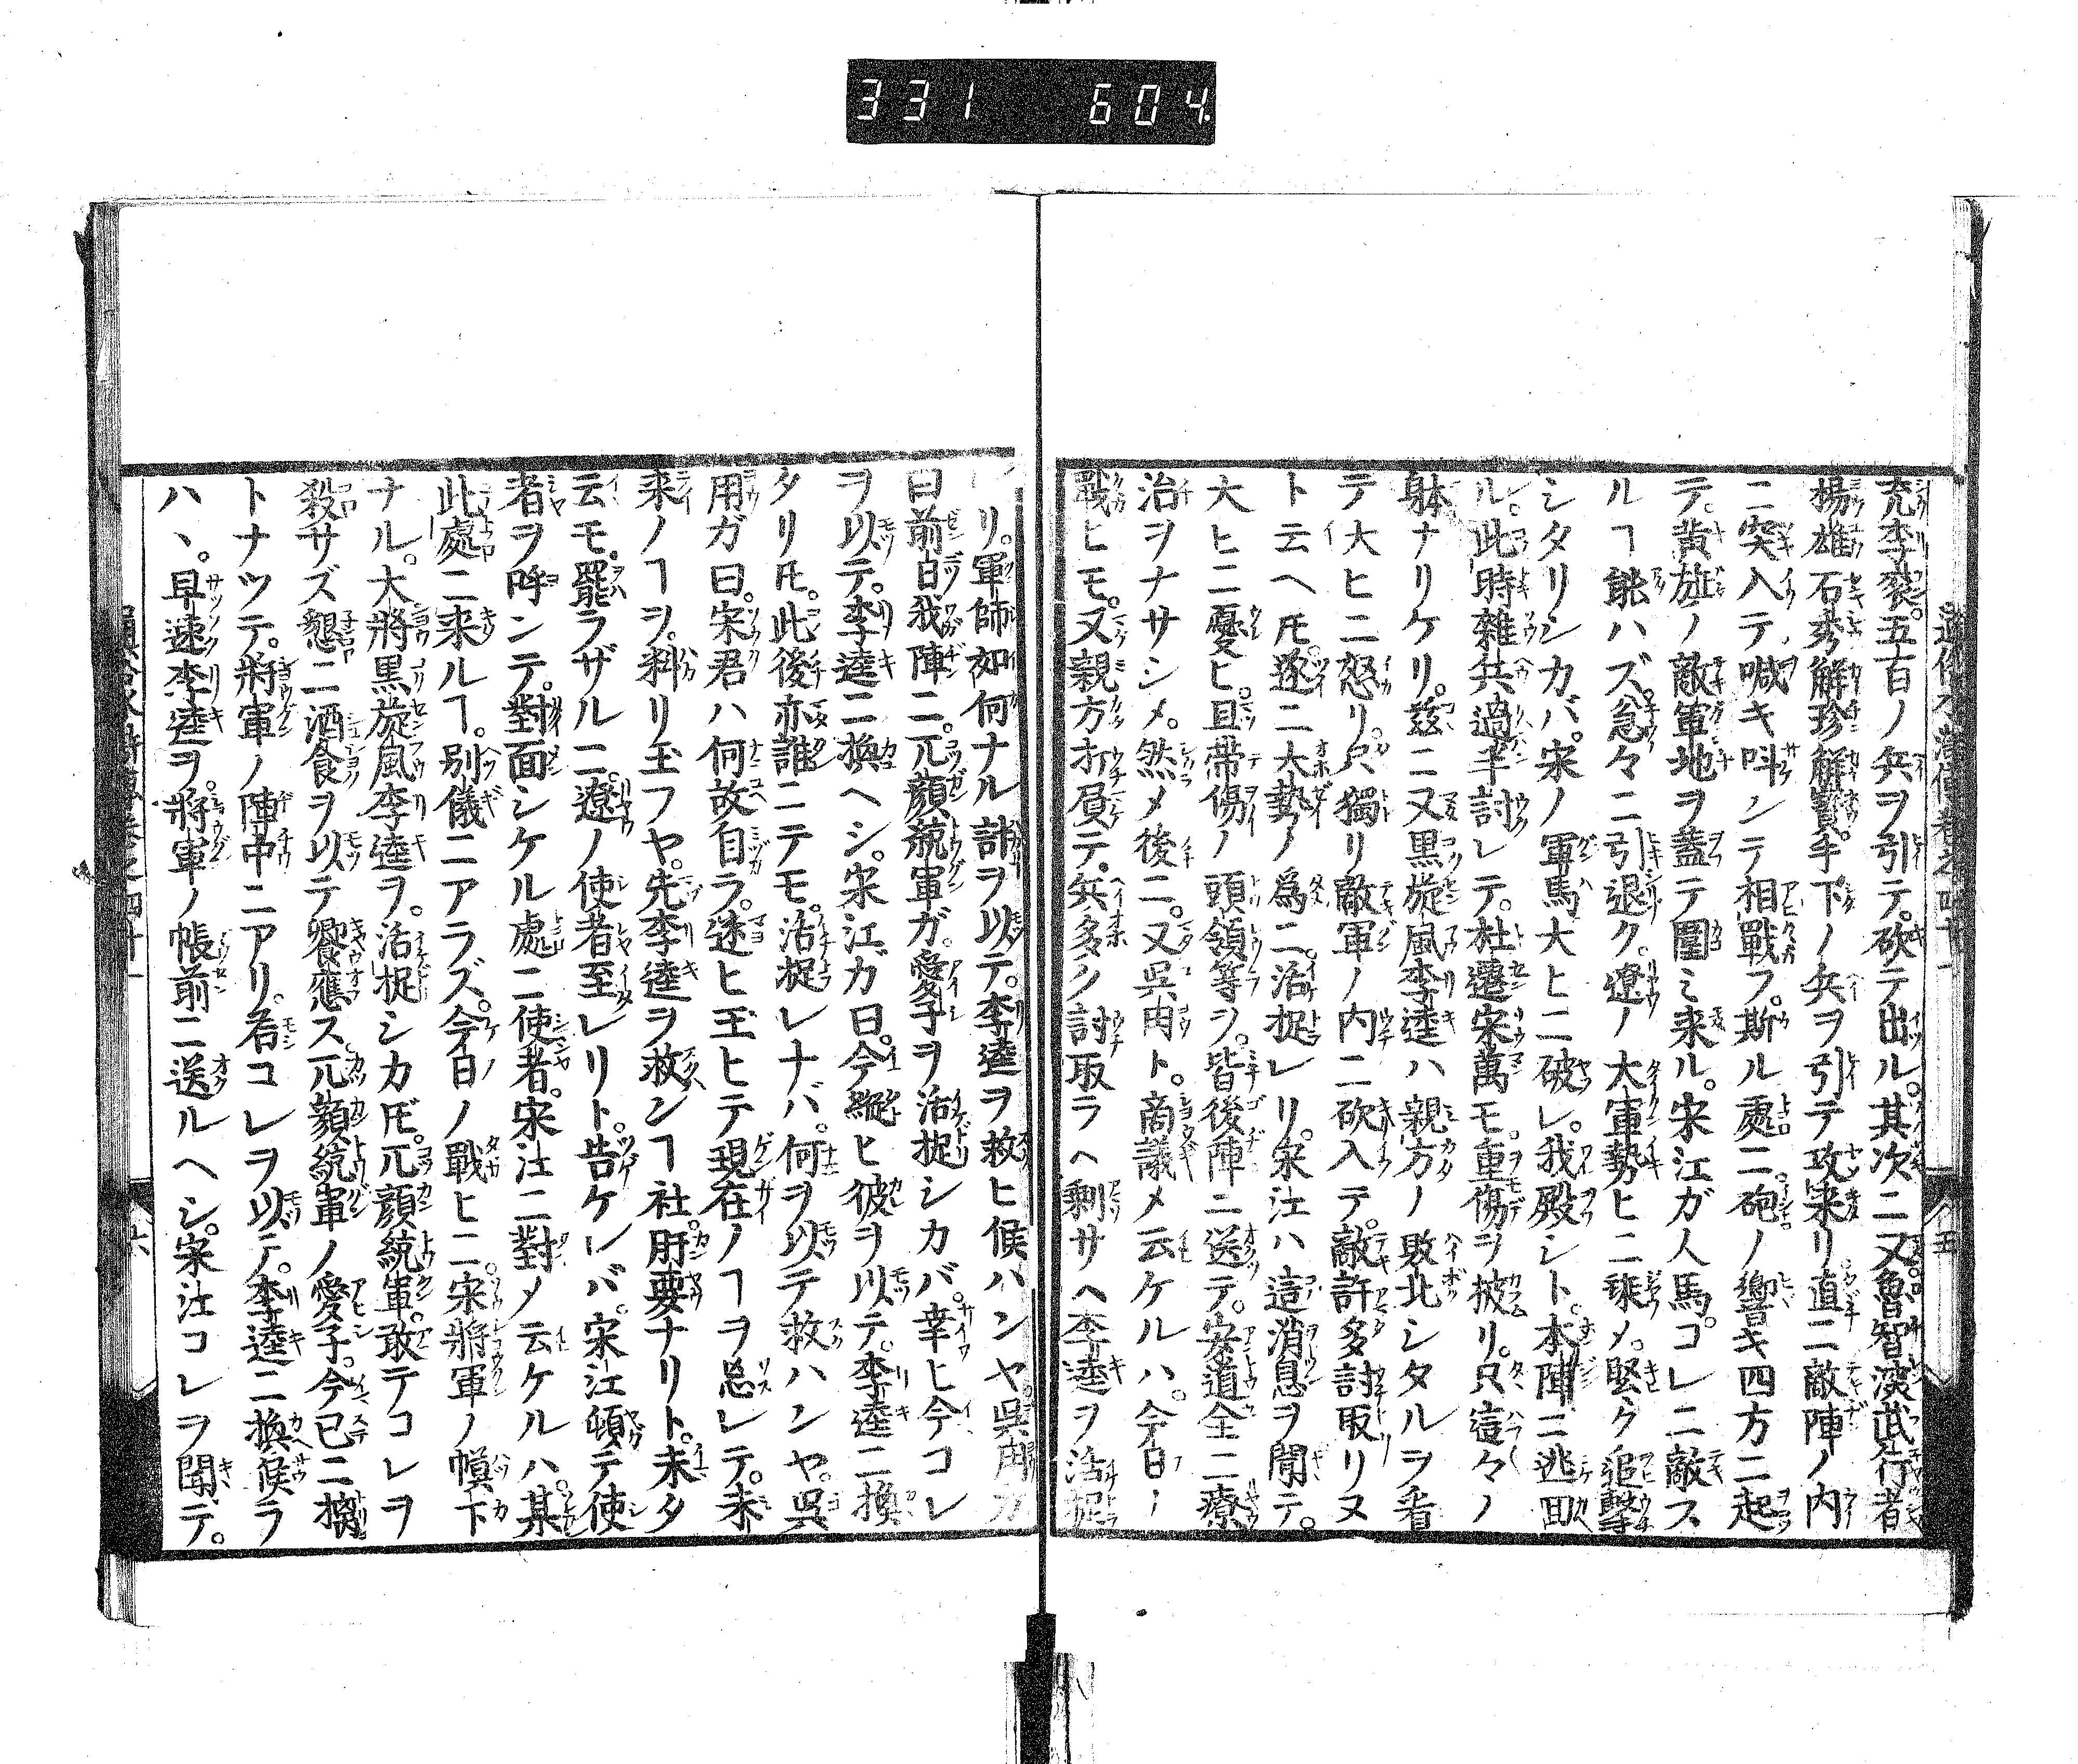 331 604
充李袞。五百ノ兵ヲ引テ。砍テ出ル。其次ニ又魯智深武行者
楊雄石秀解珍解寳。手下ノ兵ヲ引テ攻来リ。直ニ敵陣ノ内
ニ突入テ喊キ呌ンテ相戰フ。斯ル處ニ。砲ノ響キ四方ニ起
テ。黄旗ノ敵軍地ヲ蓋テ圍ミ来ル。宋江ガ人馬。コレニ敵ス
ルヿ能ハズ。急々ニ引退ク。遼ノ大軍勢ヒニ乗メ。堅ク追撃
シタリシカバ。宋ノ軍馬大ヒニ破レ。我殿シト。本陣ニ逃回
ル。此時雜兵過半討レテ。杜遷宋萬モ。重傷ヲ披リ。只這々ノ
躰ナリケリ。茲ニ又黒旋風李逵ハ親方ノ敗北シタルヲ看
テ大ヒニ怒リ。只獨リ敵軍ノ内ニ砍入テ。敵許多討取リヌ
ト云ヘ𪜈。遂ニ大勢ノ爲ニ。活捉レリ。宋江ハ這消息ヲ聞テ。
大ヒニ憂ヒ。且帯傷ノ頭領等ヲ。皆後陣ニ送テ。安道全ニ療
治ヲナサシメ。然メ後ニ。又呉用ト。商議メ云ケルハ。今日ノ
戰ヒモ。又親方折屓テ。兵多ク討取ラヘ剰サヘ李逵ヲ活捉
リ。軍師如何ナル計ヲ以テ。李逵ヲ救ヒ候ハンヤ。呉用カ
曰前日我陣ニ。兀顔統軍ガ。愛子ヲ活捉シカバ。幸ヒ今コレ
ヲ以テ。李逵ニ換ヘシ。宋江ガ曰。今縱ヒ彼ヲ以テ。李逵ニ換
タリ𪜈。此後亦誰ニテモ。活捉レナバ。何ヲ以テ救ハンヤ。呉
用ガ曰。宋君ハ何故自ラ。迷ヒ玉ヒテ現在ノヿヲ忘レテ。未
来ノヿヲ。料リ玉フヤ。先李逵ヲ救ンヿ社。肝要ナリト。未タ
云モ。罷ラザルニ。遼ノ使者至レリト。告ケレバ。宋江頓テ使
者ヲ呼ンテ。對面シケル處ニ使者。宋江ニ對メ云ケルハ。某
此處ニ来ルヿ。別儀ニアラズ。今日ノ戰ヒニ。宋將軍ノ幀下
ナル。大將黒旋風李逵ヲ。活捉シカ𪜈。兀顔統軍。敢テコレヲ
殺サズ懇ニ酒食ヲ以テ饗應ス。兀顔統軍ノ愛子。今已ニ擒
トナツテ。將軍ノ陣中ニアリ。若コレヲ以テ。李逵ニ換候ラ
ハヽ。早速李逵ヲ。將軍ノ帳前ニ送ルヘシ。宋江コレヲ聞テ。
六